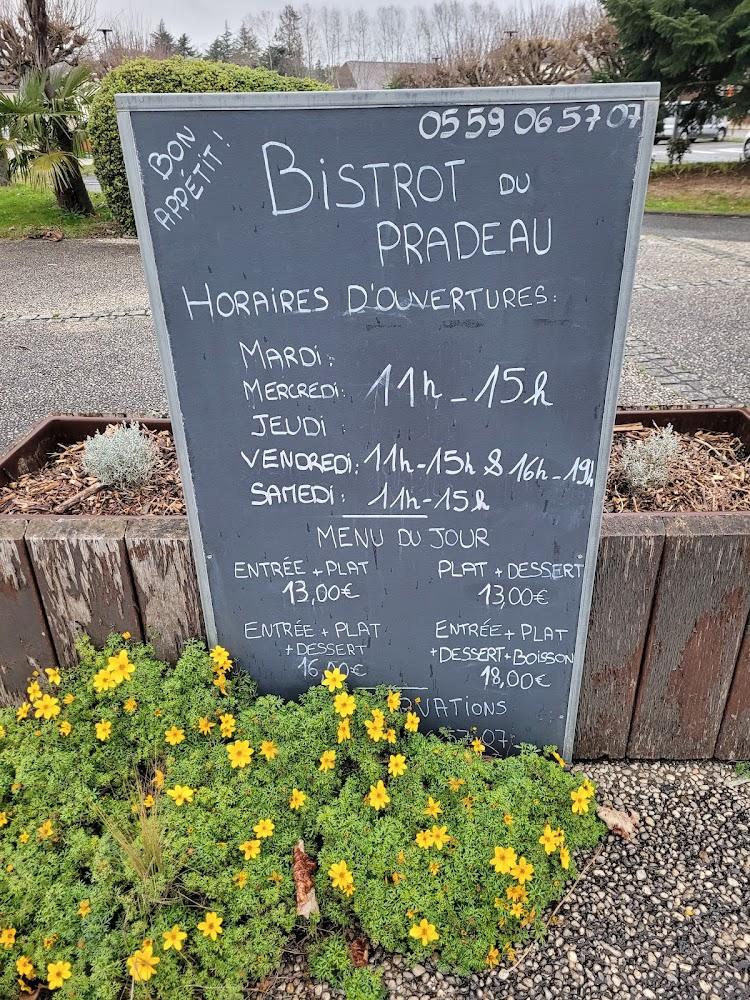 05 59 06 57 07
BON
APPÉTIT !
BiSTROT DU
PRADEAU
HORAIRES D'OUVERTURES :
MARDi :
MERCREDi : 11h - 15h
JEUDi :
VENDREDi : 11h-15h & 16h-19h
SAMEDi : 11h-15h
MENU DU JOUR
ENTRÉE + PLAT
13,00€
PLAT + DESSERT
13,00€
ENTRÉE + PLAT
+ DESSERT
16,00€
ENTRÉE + PLAT
+ DESSERT + BOISSON
18,00€
VATIONS
57.07